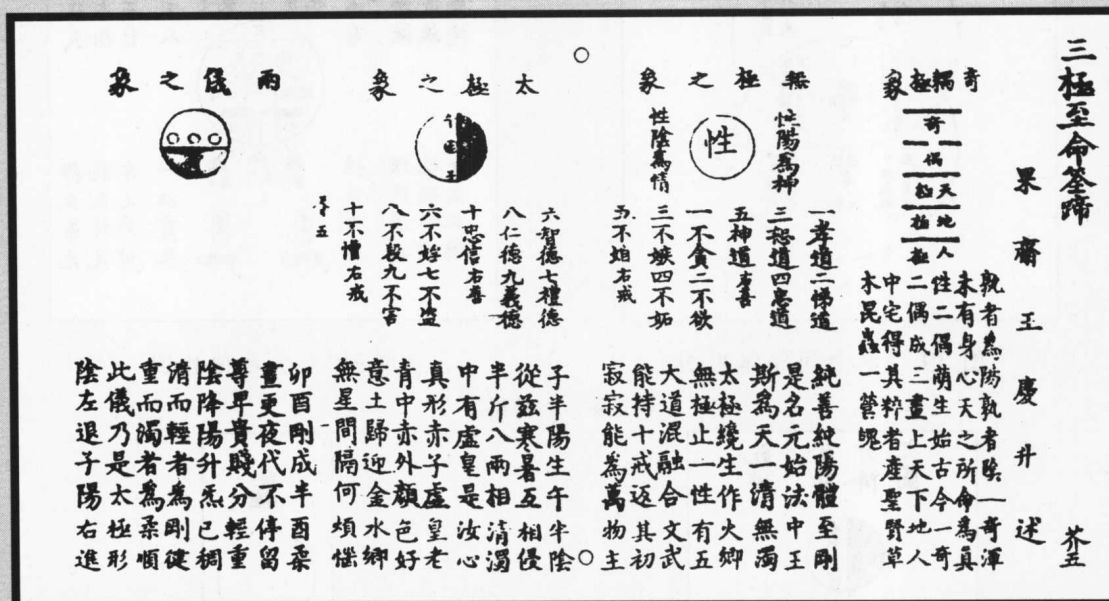 三極至命筌蹄
果齋王慶升述
芥五
奇耦極象
奇
偶
天地人
極極極
孰者為陽孰者陰一奇渾
未有身心天之所命為真
性二偶萌生始古今一奇
二偶成三畫上天下地人
中宅得其粹者產聖賢草
木昆蟲一營魄
無極之象
性陽為神
性
性陰為情
一孝道二悌道
三恕道四惠道
五神道右善
一不貪二不欲
三不嫉四不妬
五不婬右戒
純善純陽體至剛
是名元始法中王
斯為天一清無濁
太極纔生作火鄉
無極止一性有五
大道混融合文武
能持十戒返其初
寂寂能為萬物主
太極之象
六智德七禮德
八仁德九義德
十忠信右善
六不婬七不盜
八不殺九不害
十不憎右戒
子半陽生午半陰
從茲寒暑互相侵
半斤八兩相清濁
中有虛皇是汝心
真形赤子虛皇老
青中赤外顏色好
意土歸迎金水鄉
無星問隔何煩惱
兩儀之象
卯酉剛成半酉柔
晝更夜代不停留
尊卑貴賤分輕重
陰降陽升炁已稠
清而輕者為剛健
重而濁者為柔順
此儀乃是太極形
陰左退子陽右進